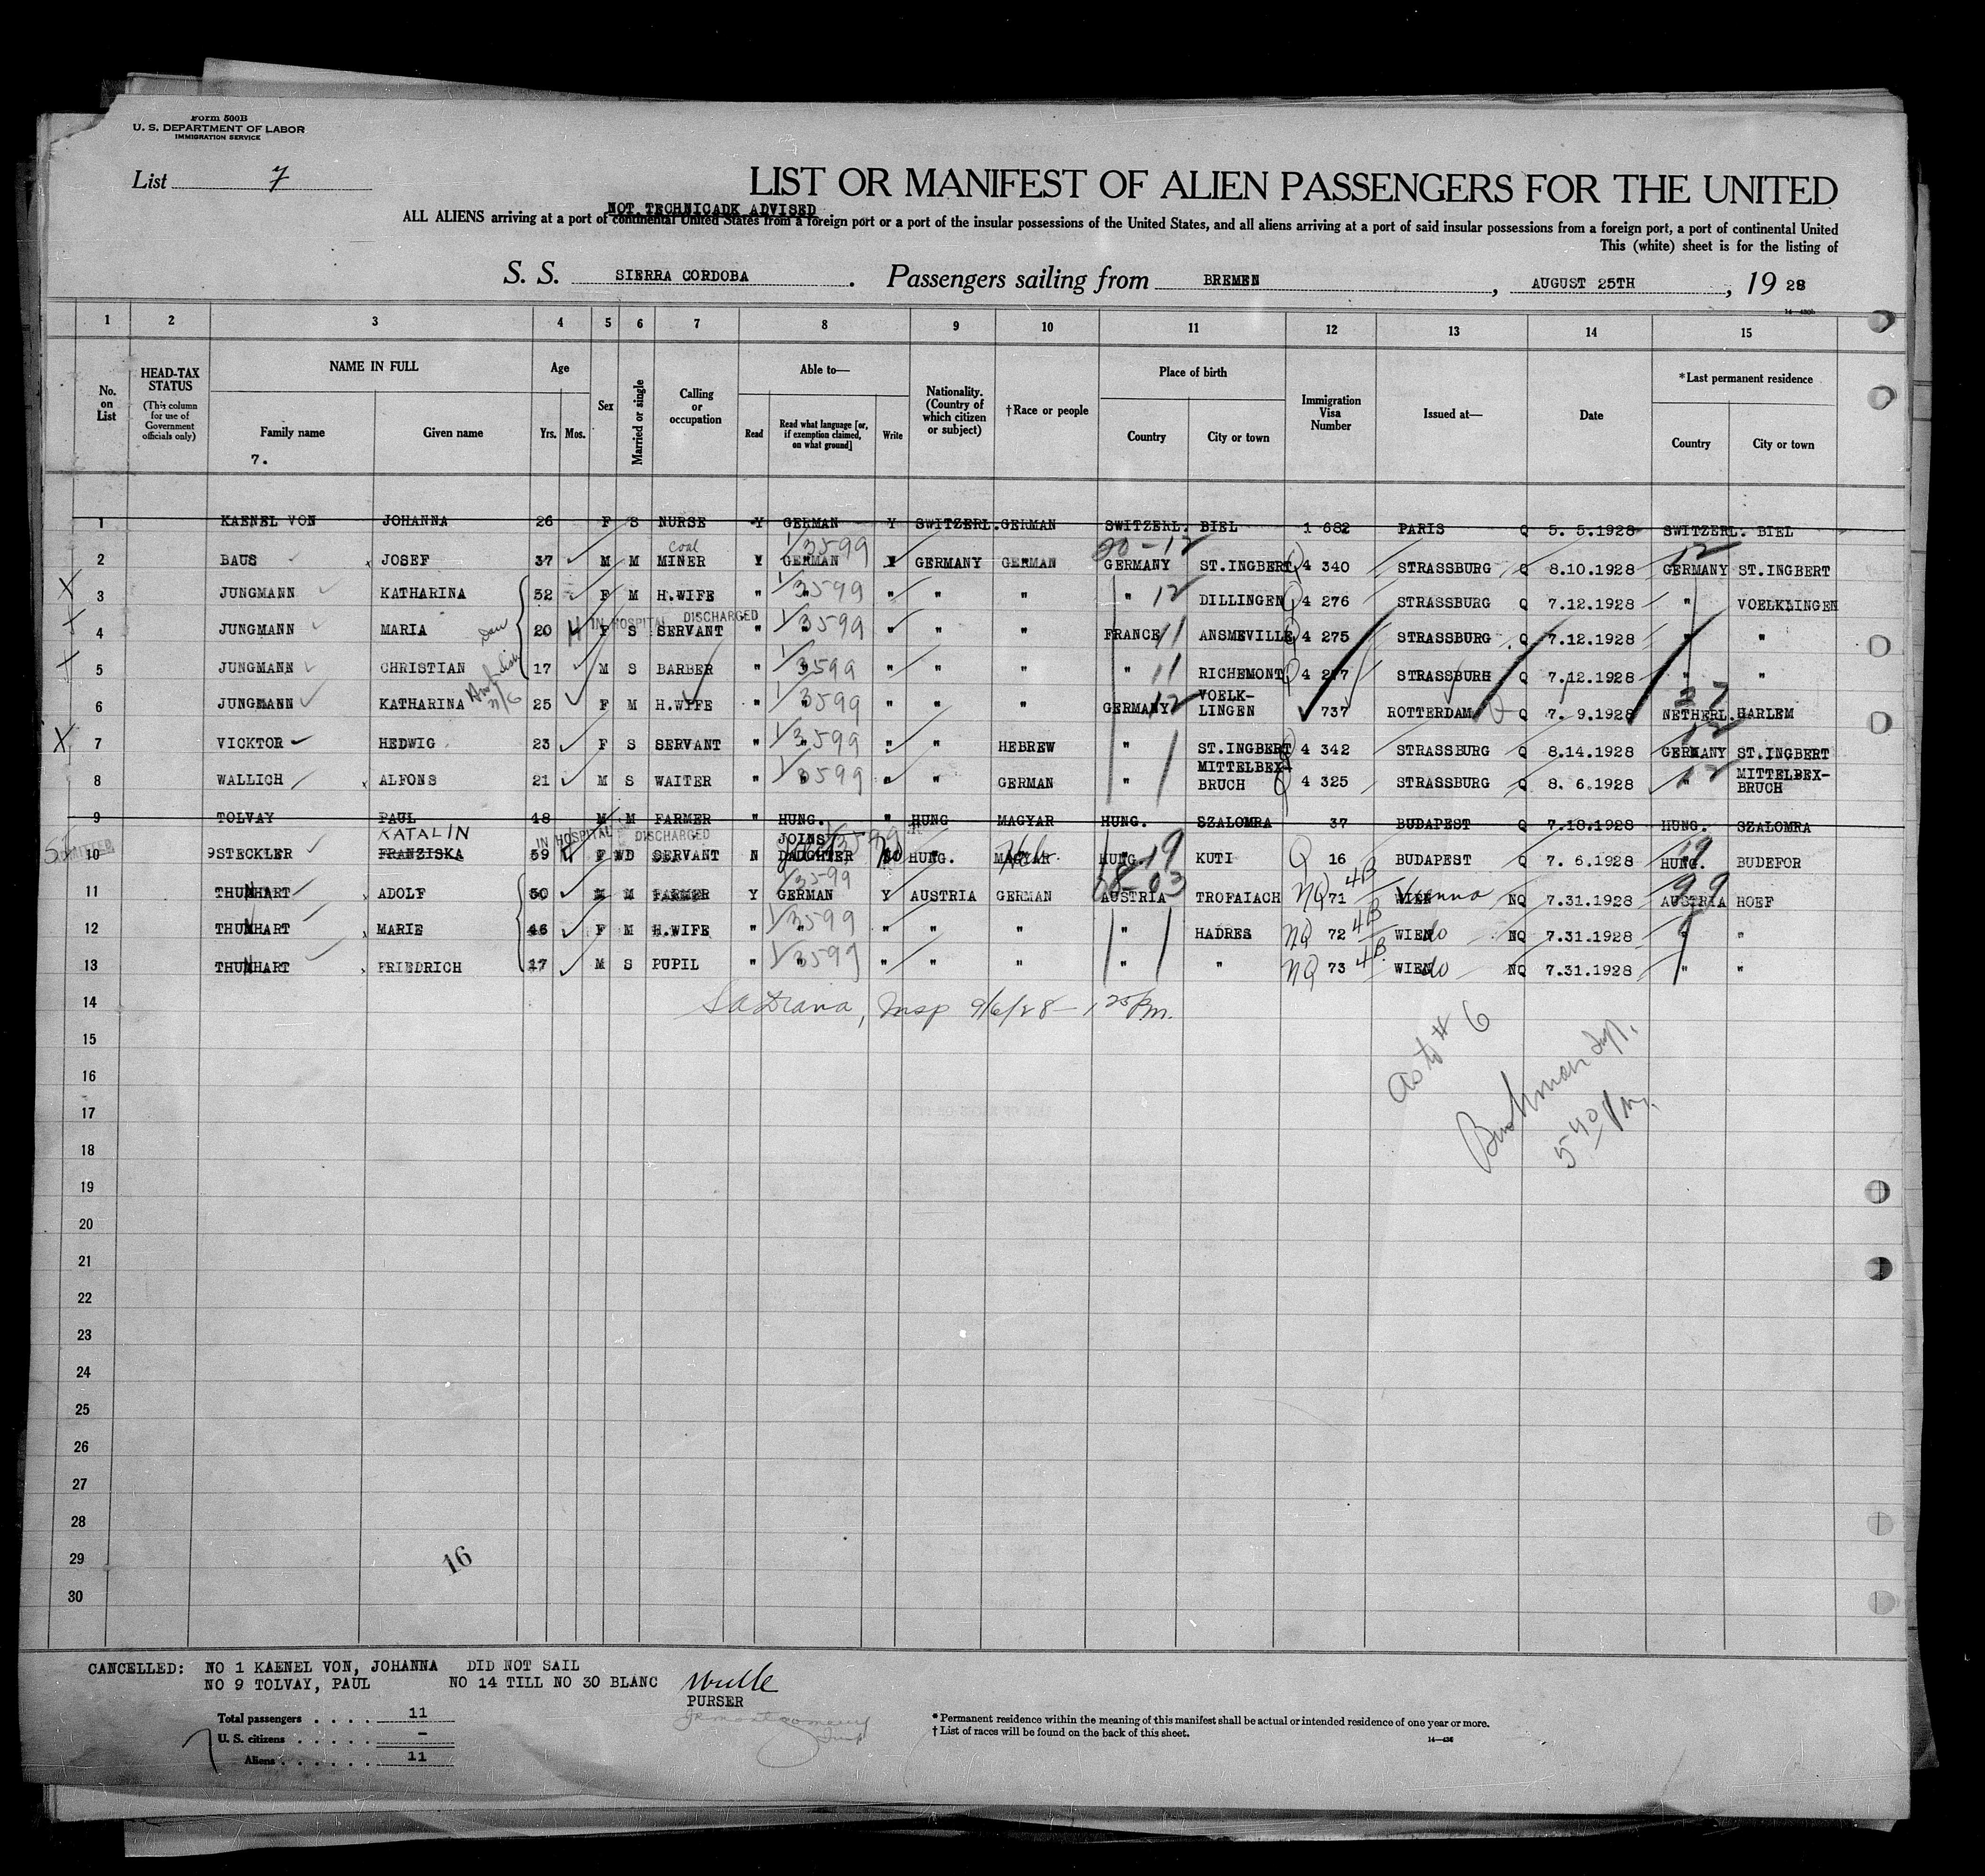 Form 500B
U. S. DEPARTMENT OF LABOR
IMMIGRATION SERVICE
List 7
LIST OR MANIFEST OF ALIEN PASSENGERS FOR THE UNITED
NOT TECHNICADK ADVISED
ALL ALIENS arriving at a port of continental United States from a foreign port or a port of the insular possessions of the United States, and all aliens arriving at a port of said insular possessions from a foreign port, a port of continental United
This (white) sheet is for the listing of
S. S. SIERRA CORDOBA. Passengers sailing from BREMEN, AUGUST 25TH, 19 28
1 2 3 4 5 6 7 8 9 10 11 12 13 14 15
No. on List
HEAD-TAX STATUS (This column for use of Government officials only)
NAME IN FULL
Family name
Given name
7.
Age
Yrs. Mos.
Sex
Married or single
Calling or occupation
Able to—
Read
Read what language [or, if exemption claimed, on what ground]
Write
Nationality. (Country of which citizen or subject)
†Race or people
Place of birth
Country City or town
Immigration Visa Number
Issued at—
Date
*Last permanent residence
Country City or town
1 KAENEL VON JOHANNA 26 F S NURSE Y GERMAN Y SWITZERL. GERMAN SWITZERL. BIEL 1 682 PARIS Q 5. 5.1928 SWITZERL. BIEL
coal 1/3599 20-12 12
2 BAUS JOSEF 37 M M MINER Y GERMAN Y GERMANY GERMAN GERMANY ST.INGBERT Q 4 340 STRASSBURG Q 8.10.1928 GERMANY ST.INGBERT
X 3 JUNGMANN KATHARINA 52 F M H.WIFE " " 1/3599 " " " " 12 DILLINGEN Q 4 276 STRASSBURG Q 7.12.1928 " VOELKLINGEN
IN HOSPITAL DISCHARGED
X 4 JUNGMANN MARIA 20 F S SERVANT " " 1/3599 " " " FRANCE 11 ANSMEVILLE Q 4 275 STRASSBURG Q 7.12.1928 " "
X 5 JUNGMANN CHRISTIAN 17 M S BARBER " " 1/3599 " " " " 11 RICHEMONT Q 4 277 STRASSBURG Q 7.12.1928 " "
6 JUNGMANN KATHARINA 25 F M H.WIFE " " 1/3599 " " " GERMANY 12 VOELK-LINGEN 737 ROTTERDAM Q 7. 9.1928 NETHERL. HARLEM
X 7 VICKTOR HEDWIG 23 F S SERVANT " " 1/3599 " " HEBREW " ST.INGBERT Q 4 342 STRASSBURG Q 8.14.1928 GERMANY ST.INGBERT
8 WALLICH ALFONS 21 M S WAITER " " 1/3599 " " GERMAN " MITTELBEX-BRUCH Q 4 325 STRASSBURG Q 8. 6.1928 " 12 MITTELBEX-BRUCH
9 TOLVAY PAUL 48 M M FARMER " HUNG. " HUNG MAGYAR HUNG. SZALOMRA 37 BUDAPEST Q 7.18.1928 HUNG. SZALOMRA
KATALIN IN HOSPITAL DISCHARGED JOINS
10 STECKLER FRANZISKA 59 F WD SERVANT N DAUGHTER NO HUNG. MAGYAR HUNG. 19 KUTI Q 16 BUDAPEST Q 7. 6.1928 HUNG. 19 BUDEFOR
11 THUNHART ADOLF 50 M M FARMER Y GERMAN 1/3599 Y AUSTRIA GERMAN AUSTRIA TROFAIACH NQ 71 4B WIEN Vienna NQ 7.31.1928 AUSTRIA HOEF
12 THUNHART MARIE 46 F M H.WIFE " " 1/3599 " " " " HADRES NQ 72 4B WIEN do NQ 7.31.1928 " "
13 THUNHART FRIEDRICH 17 M S PUPIL " " 1/3599 " " " " " NQ 73 4B WIEN do NQ 7.31.1928 " "
14 Insp 9/6/28 - 1 20 Pm.
15
as to # 6
16
17
5 40 Pm.
18
19
20
21
22
23
24
25
26
27
28
29
16
30
CANCELLED: NO 1 KAENEL VON, JOHANNA DID NOT SAIL
NO 9 TOLVAY, PAUL NO 14 TILL NO 30 BLANC
PURSER
Total passengers . . . . 11
U. S. citizens . . . . . –
Aliens . . . . . . 11
* Permanent residence within the meaning of this manifest shall be actual or intended residence of one year or more.
† List of races will be found on the back of this sheet.